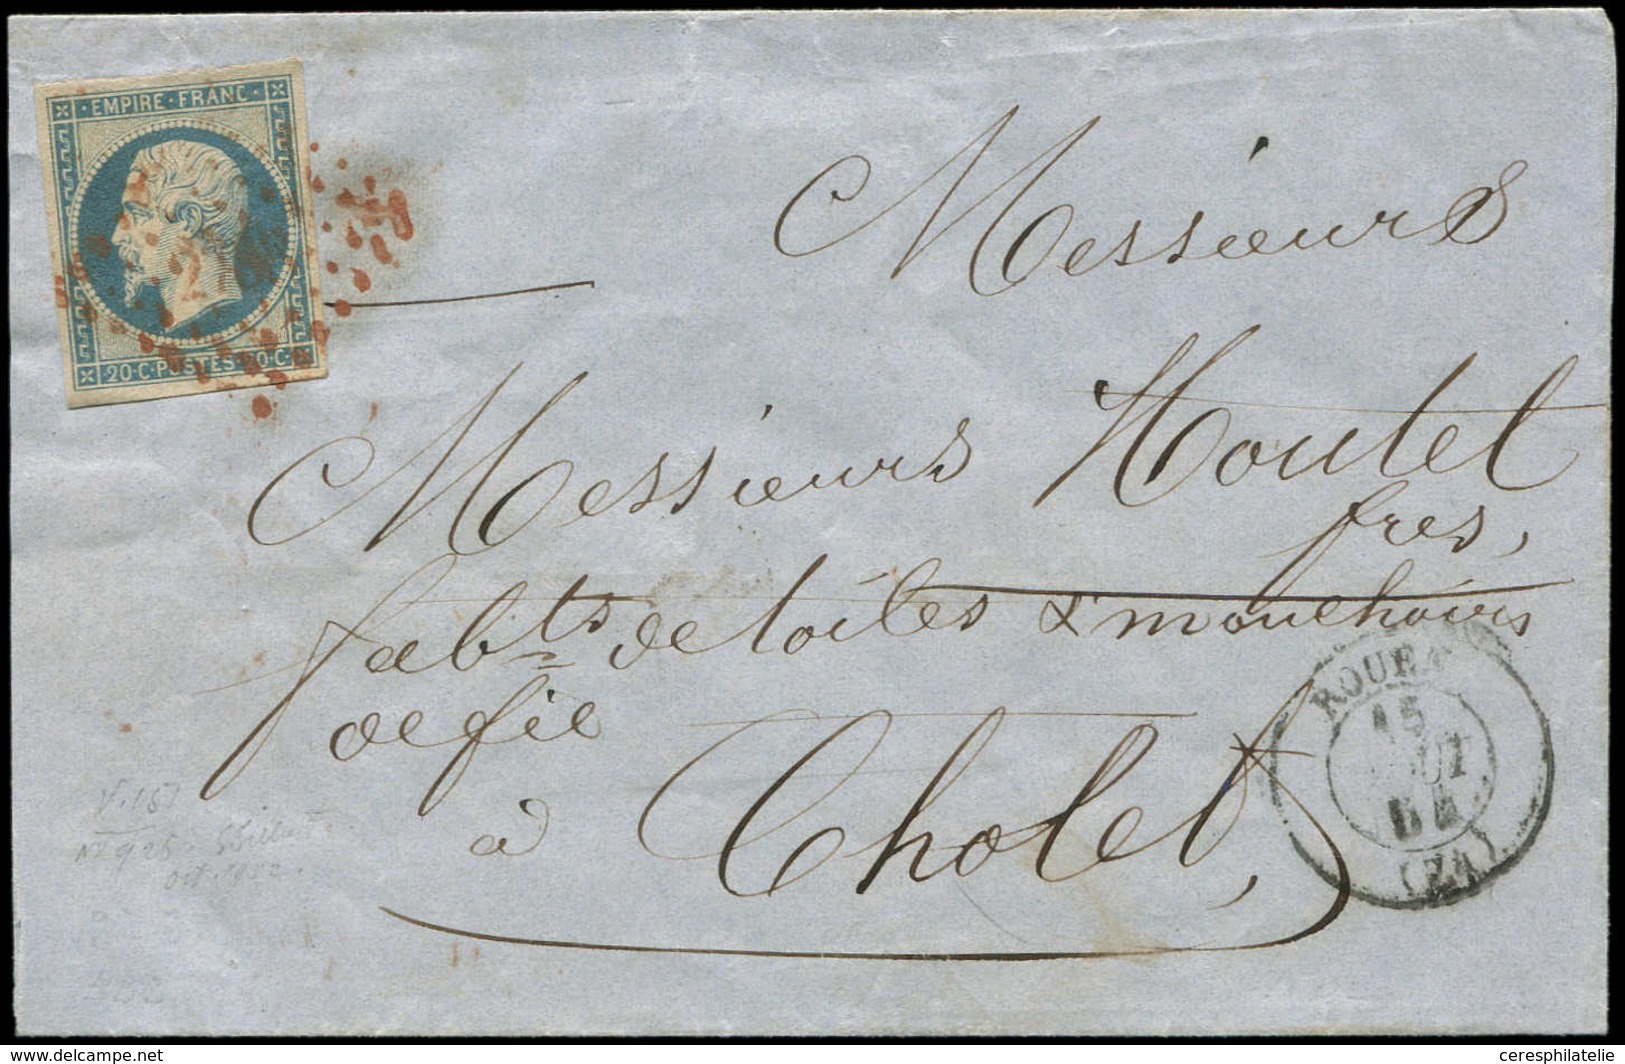 EMPIRE · FRANC ·
20 · C · POSTES · 20 · C ·
Messieurs
Messieurs Houtel
fres,
fabts de toiles & mouchoirs
de fil
à Cholet,
ROUEN
15
AOUT
54
(74)
V. 151
Nº 925.
Oct. 1952.
www.delcampe.net
ceresphilatelie